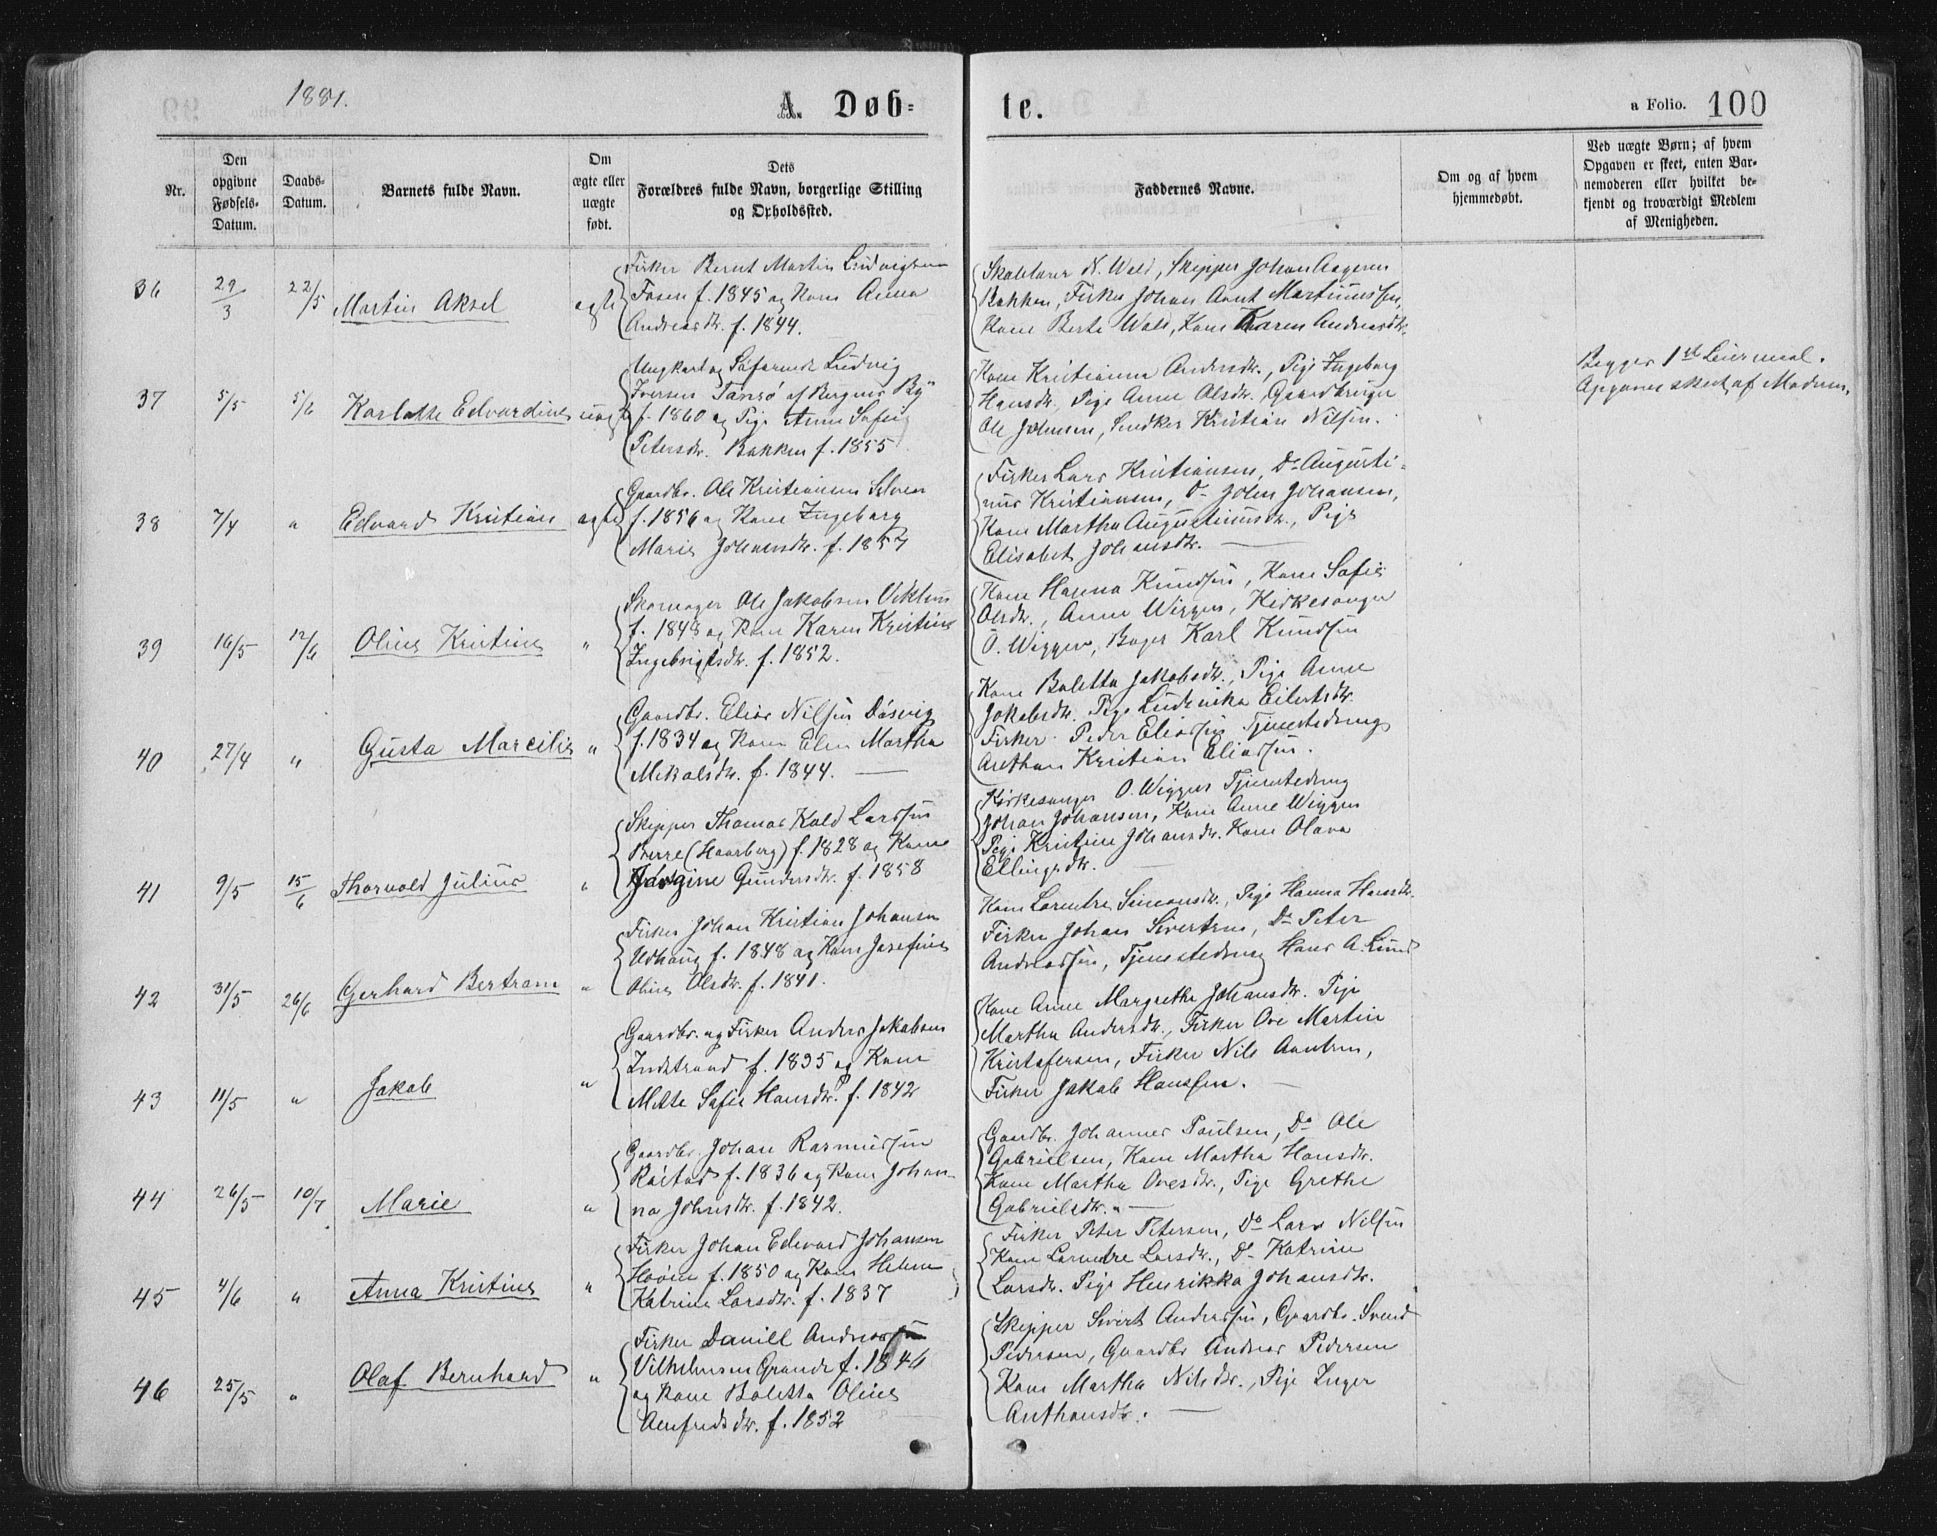 1881.
A. Døb-
te.
a Folio. 100
Nr.
Den opgivne Fødsels-Datum.
Daabs-Datum.
Barnets fulde Navn.
Om ægte eller uægte født.
Dets Forældres fulde Navn, borgerlige Stilling og Opholdssted.
Faddernes Navne.
Om og af hvem hjemmedøbt.
Ved uægte Børn; af hvem Opgaven er skeet, enten Barnemoderen eller hvilket bekjendt og troværdigt Medlem af Menigheden.
36 29/3 22/5 Martin Aksel ægte
Fisker Bernt Martin Ludvigsen
f. 1845 og Kone Anna
Andreasdtr. f. 1844.
N. Wald, Skipper Johan
Bakken, Fisker Johan Arnt Martinussen,
Kone Berte Wald, Kone Karen Andreasdtr.
37 5/5 5/6 Karlotte Edvardine uægte
Ungkarl og Søfarende Ludvig
Iversen af Bergens By
f. 1860 og Pige Anne Sofie
Petersdtr. Bakken f. 1855
Kone Kristianna Andersdtr., Pige Ingeborg
Hansdtr, Pige Anne Olsdtr, Gaardbruger
Ole Johnsen, Snedker Kristian Nilsen.
Begges 1ste Leiermaal.
Opgaven skeet af Moderen.
38 7/4 " Edvard Kristian ægte
Gaardbr. Ole Kristiansen Selven
f. 1856 og Kone Ingeborg
Marie Johnsdtr. f. 1857
Fisker Lars Kristiansen, Do Augusti-
nus Kristiansen, Do John Johansen,
Kone Martha Augustinusdtr., Pige
Elisabet Johansdtr.
39 16/5 12/6 Oline Kristine "
Skomager Ole Jakobsen
f. 1848 og Kone Karen Kristine
Ingebrigtsdtr. f. 1852.
Kone Hanna Knudsen, Kone Sofie
Olsdtr., Anne Wiggen, Kirkesanger
O. Wiggen, Bager Karl Knudsen
40 27/4 " Gusta Marcilie "
Gaardbr. Elias Nilsen Døsvig
f. 1834 og Kone Elen Martha
Mikalsdtr. f. 1844.
Kone Boletta Jakobsdtr., Pige Anne
Jakobsdtr. Pige Ludvika Eilertsdtr.
Fisker Peder Eliassen Tjenestedreng
Anthon Kristian Eliassen.
41 9/5 15/6 Thorvald Julius "
Skipper Thomas Kold Larssen
(Haarberg) f. 1828 og Kone
Jørgine Gundersdtr. f. 1858
Kirkesanger O. Wiggen Tjenestedreng
Johan Johansen, Kone Anne Wiggen
Pige Kristine Johansdtr. Kone Olava
Ellingsdtr.
42 31/5 26/6 Gerhard Bertram "
Fisker Johan Kristian Johansen
Udhaug f. 1848 og Kone Josefine
Oline Olsdtr. f. 1841.
Kone Lorentze Simonsdtr., Pige Hanna Hansdtr.
Fisker Johan Sivertsen, Do Peter
Andreassen, Tjenestedreng Hans A. Lund
43 11/5 " Jakob "
Gaardbr. og Fisker Anders Jakobsen
Indstrand f. 1835 og Kone
Mette Sofie Hansdtr. f. 1842
Kone Anne Margrethe Johansdtr. Pige
Martha Andersdtr., Fisker Ove Martin
Kristofersen, Fisker Nils Arntsen,
Fisker Jakob Hanssen.
44 26/5 10/7 Marie "
Gaardbr. Johan Rasmussen
f. 1836 og Kone Johan-
na Johnsdtr. f. 1842.
Gaardbr. Johannes Paulsen, Do Ole
Gabrielsen, Kone Martha Hansdtr.
Kone Martha Ovesdtr., Pige Grethe
Gabrielsdtr.
45 4/6 " Anna Kristine "
Fisker Johan Edvard Johansen
f. 1850 og Kone Helene
Katrine Larsdtr. f. 1837
Fisker Peter Petersen, Do Lars Nilsen
Kone Lorentze Larsdtr., Do Katrine
Larsdtr. Pige Henrikka Johansdtr.
46 25/5 " Olaf Bernhard "
Fisker Daniel Andreas
Vilhelmsen Grande f. 1846
og Kone Boletta Oline
f. 1852
Skipper Sivert Andreassen, Gaardbr. Svend
Pedersen, Gaardbr Andreas Pedersen
Kone Martha Nilsdtr., Pige Inger
Anthonsdtr.